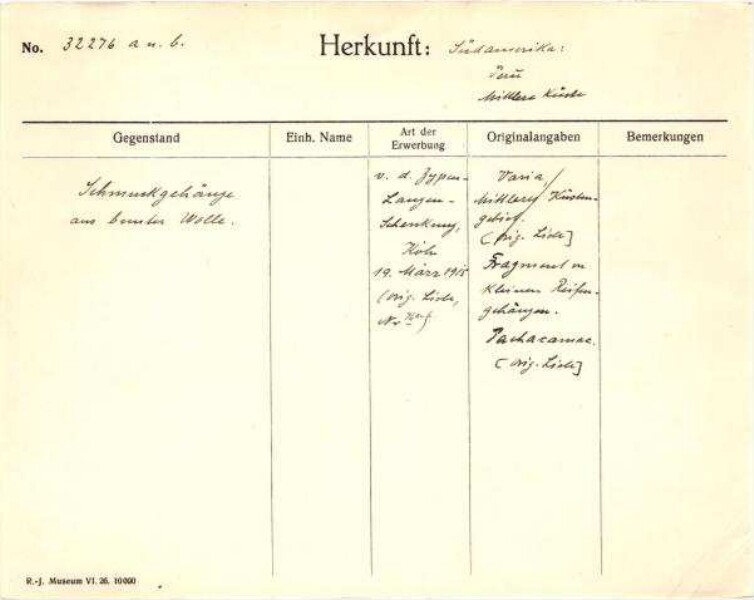 No. 32276 a u. b.
Herkunft: Südamerika:
Peru
Mittlere Küste
Gegenstand
Einh. Name
Art der
Erwerbung
Originalangaben
Bemerkungen
Schmuckgehänge
aus bunter Wolle.
v. d. Zypen-
Langen-
Schenkung,
Köln
19. März 1915
(orig. Liste,
No
Varia,
Mittlere Küsten-
gebiet.
(orig. Liste]
Fragment v
kleinen Reifen-
gehängen.
Pachacamac.
(orig. Liste]
R.-J. Museum VI. 26. 10000